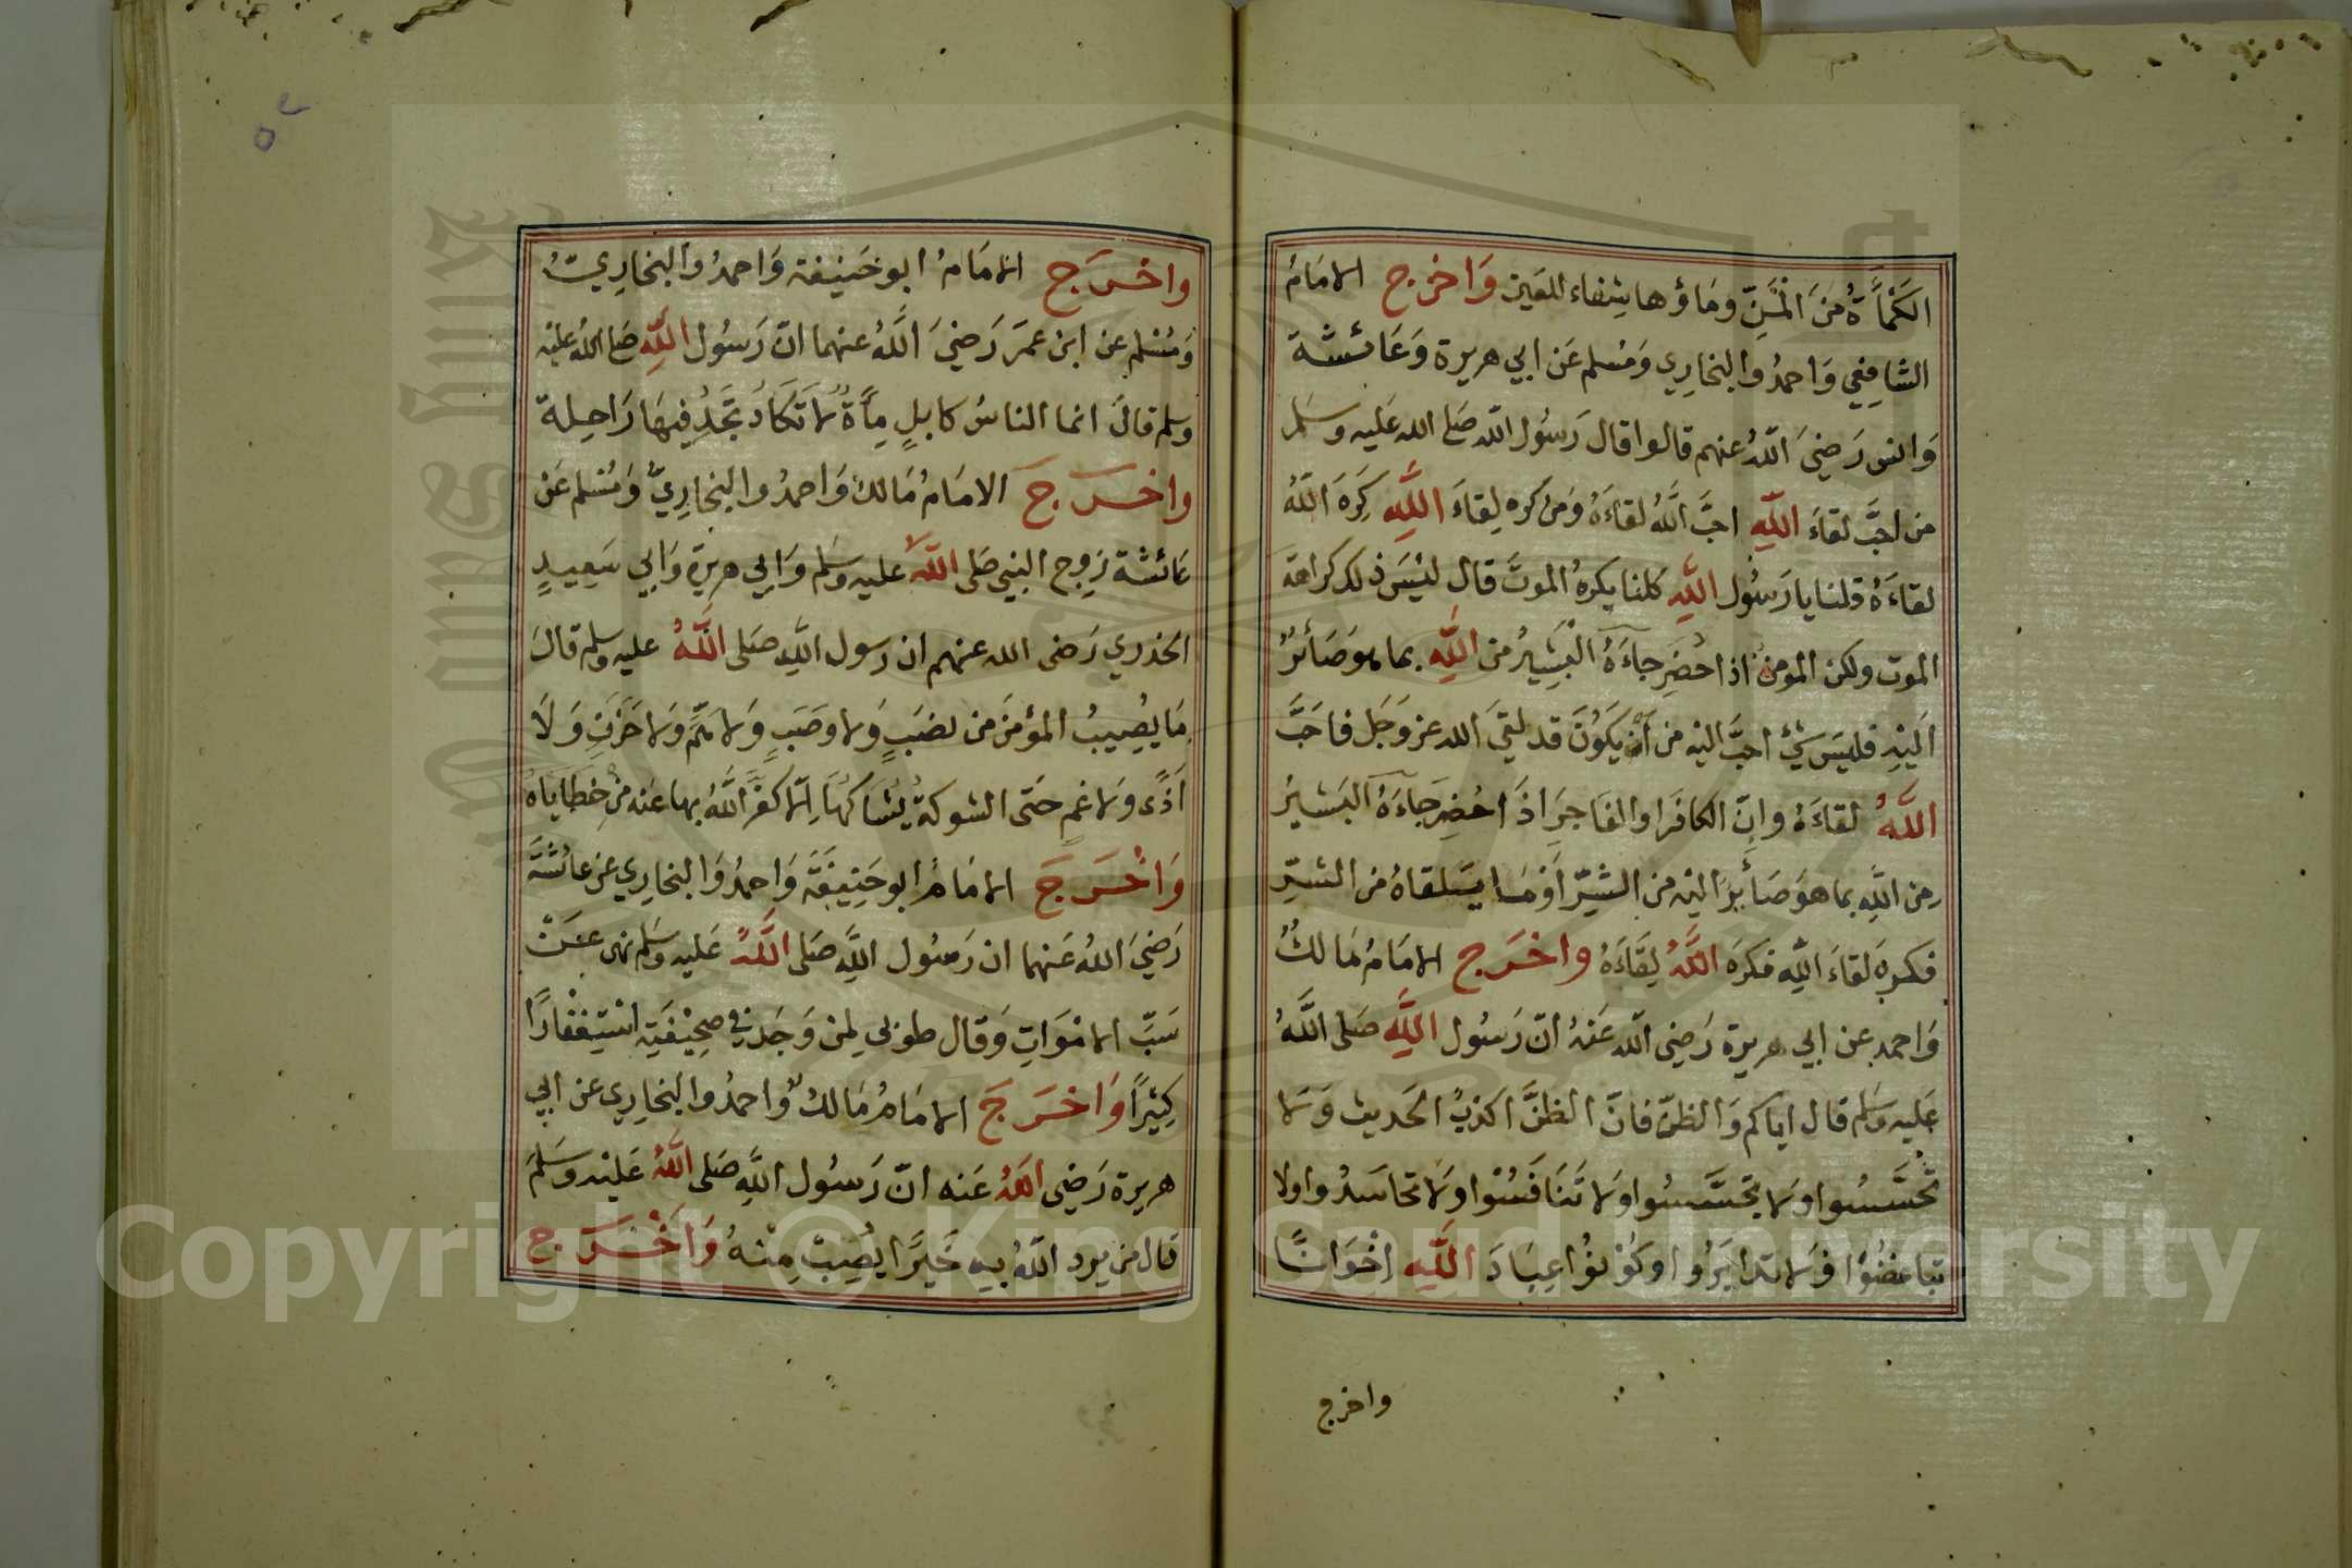 الكَمْأَةُ مِنَ الْمَنِّ ومَاؤها شِفاء للعَين وَاخرج الامَامُ
الشافِعي وَاحمدُ والبخارِي وَمُسلم عَن ابي هريرة وَعَائشة
وَانس رَضيَ اللهُ عنهم قالوا قال رَسُول الله صَلى الله عَليه وسَلم
من احَبَّ لقاءَ اللهِ احبَّ اللهُ لقاءَهُ وَمن كره لِقاءَ اللهِ كَرِهَ اللهُ
لقاءَهُ قلنا يا رَسُول اللهِ كلنا يكرهُ الموتَ قال ليْسَ ذلك كراهة
الموت ولكن المومن اذا حُضِرَ جاءَهُ البَشِيرُ من اللهِ بما هو صَائرٌ
اليْهِ فليسَ شيْ احبَّ اليه من أنْ يكوُنَ قد لقيَ الله عز وَجَل فاحَبَّ
اللهُ لقاءَهُ وانّ الكافرَ او الفَاجرَ اذَا حُضِرَ جَاءَهُ البَشيرُ
مِن اللهِ بما هوَ صَائرٌ اليه من الشرّ أوْ مَا يَلقاهُ من الشرّ
فكرِه لقاءَ اللهِ فكرَهَ اللهُ لِقَاءَهُ واخرَج الامَامُ مَالكُ
وَاحمد عن ابي هريرة رَضِي الله عَنهُ انّ رَسُول اللهِ صَلى اللهُ
عَليه وسَلم قال اياكم وَالظنّ فانّ الظنَّ اكذبُ الحَديث وَلا
تحسَّسُوا ولا تجسَّسُوا ولا تَنَافَسُوا ولا تحاسَدُوا ولا
تباغضُوا وَلا تدابَرُوا وكوْنوُا عِبَادَ اللهِ اخْوَانًا
واخرج
واخرَج الامَامُ ابو حَنيفة وَاحمدُ والبخارِيّ
وَمُسْلم عن ابن عمَرَ رَضيَ اللهُ عنهما انّ رَسُول اللهِ صَلى الله عليْه
وسلم قالَ انما الناسُ كابلٍ مِأةٌ لا تكَادُ تَجِدُ فِيهَا رَاحِلة
واخرَجَ الامَامُ مَالك وَاحمدُ والبخارِيُّ وَمُسْلم عَن
عَائشة زوج النبي صَلى الله عليه وسَلم وَابي هريرَة وَابي سَعِيدٍ
الخدري رَضى الله عنهم ان رسول اللهِ صَلى اللهُ عليه وسلم قالَ
مَا يصِيبُ المؤمنَ من نصَبٍ وَلا وصَبٍ وَلا هَمٍّ وَلا حَزَنٍ وَلَا
أَذًى وَلا غمٍ حَتى الشوكةُ يُشَاكهَا اِلّا كفّرَ اللهُ بها عَنه من خطَايَاهُ
وَاخْرَجَ الامَامُ ابو حَنِيفَةَ وَاحمدُ وَالبخارِي عَن عائشَةَ
رَضيَ اللهُ عَنهما ان رَسُول اللهِ صَلى اللهُ عَليه وسَلم نهى عَنْ
سَبّ الامْوَاتِ وَقال طوْبى لِمن وَجَدَ في صَحِيْفَتِه اسْتِغْفارًا
كثِيْرًا وَاخرَجَ الامَامُ مَالكُ وَاحمدُ والبخَارِي عَن ابي
هريرة رَضِي اللهُ عَنه انّ رَسُول اللهِ صَلى اللهُ عَليْه وسَلمَ
قال من يرد اللهُ بِهِ خَيرًا يُصِبْ مِنْهُ وَاَخْرَج
Copyright © King Saud University